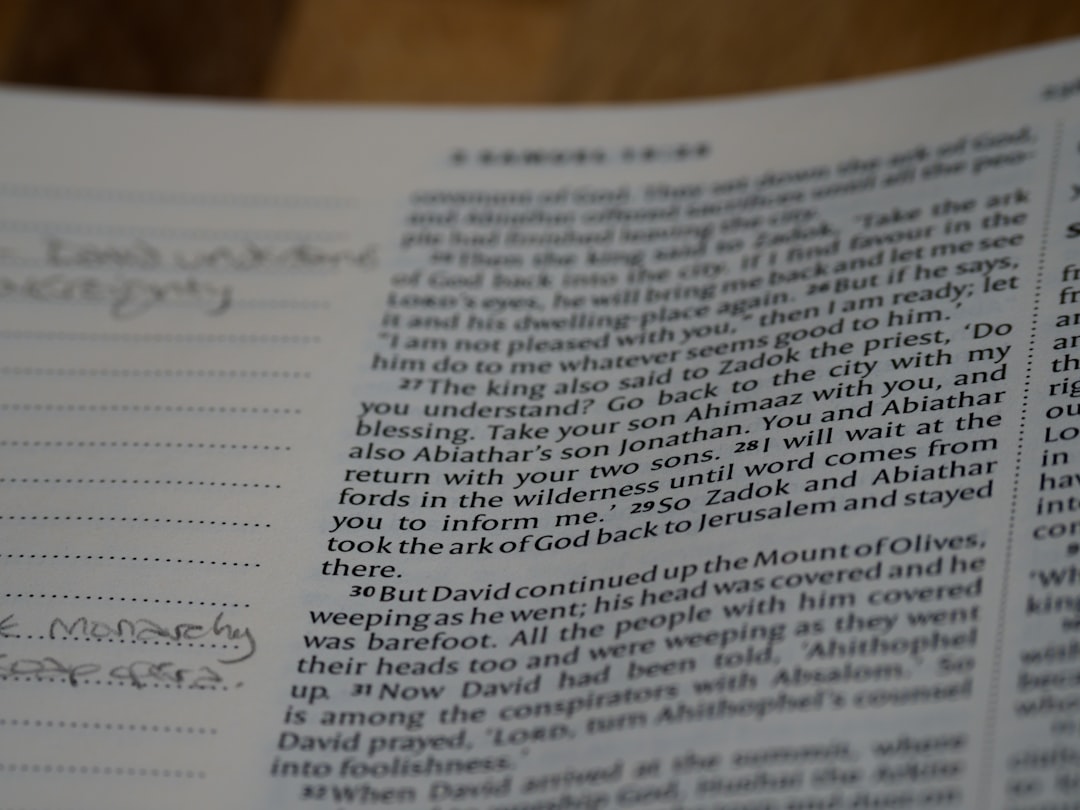 sovereignty
Monarchy
soap opera.
2 SAMUEL
covenant of God. They set down the ark of God,
and Abiathar offered sacrifices until all the peo-
ple had finished leaving the city.
Then the king said to Zadok, 'Take the ark
of God back into the city. If I find favour in the
LORD's eyes, he will bring me back and let me see
it and his dwelling-place again. 26 But if he says,
"I am not pleased with you," then I am ready; let
him do to me whatever seems good to him.'
27 The king also said to Zadok the priest, 'Do
you understand? Go back to the city with my
blessing. Take your son Ahimaaz with you, and
also Abiathar's son Jonathan. You and Abiathar
return with your two sons. 28 I will wait at the
fords in the wilderness until word comes from
you to inform me.' 29 So Zadok and Abiathar
took the ark of God back to Jerusalem and stayed
there.
30 But David continued up the Mount of Olives,
weeping as he went; his head was covered and he
was barefoot. All the people with him covered
their heads too and were weeping as they went
up. 31 Now David had been told, 'Ahithophel
is among the conspirators with Absalom.' So
David prayed, 'LORD, turn Ahithophel's counsel
into foolishness.'
32 When David arrived at the summit, where
worship God, Hushai the Arkite